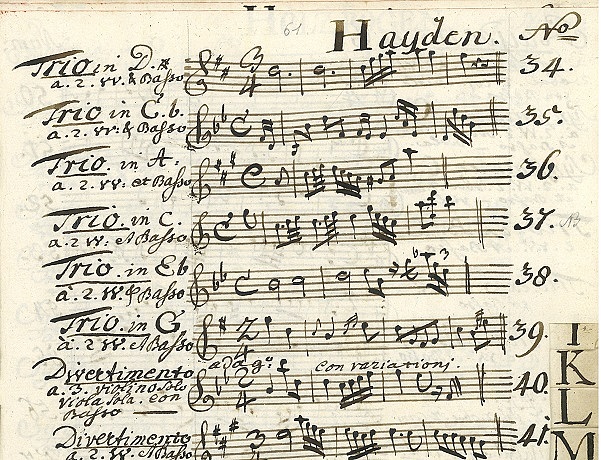 61
Hayden. No
Trio in D.#
a. 2. VV. & Basso 34.
Trio in E.b.
a. 2. VV: & Basso 35.
Trio. in A.
a. 2. VV: et Basso 36.
Trio. in C.
a. 2 VV: et Basso 37. NB
Trio. in Eb
a. 2. VV. & Basso 38.
Trio. in G
a. 2. VV. et Basso 39.
Divertimento adag:o con variationi.
a. 3. violino solo 40.
viola sola. con
Basso
Divertimento
a. 2. VV. et Basso 41.
I
K
L
M